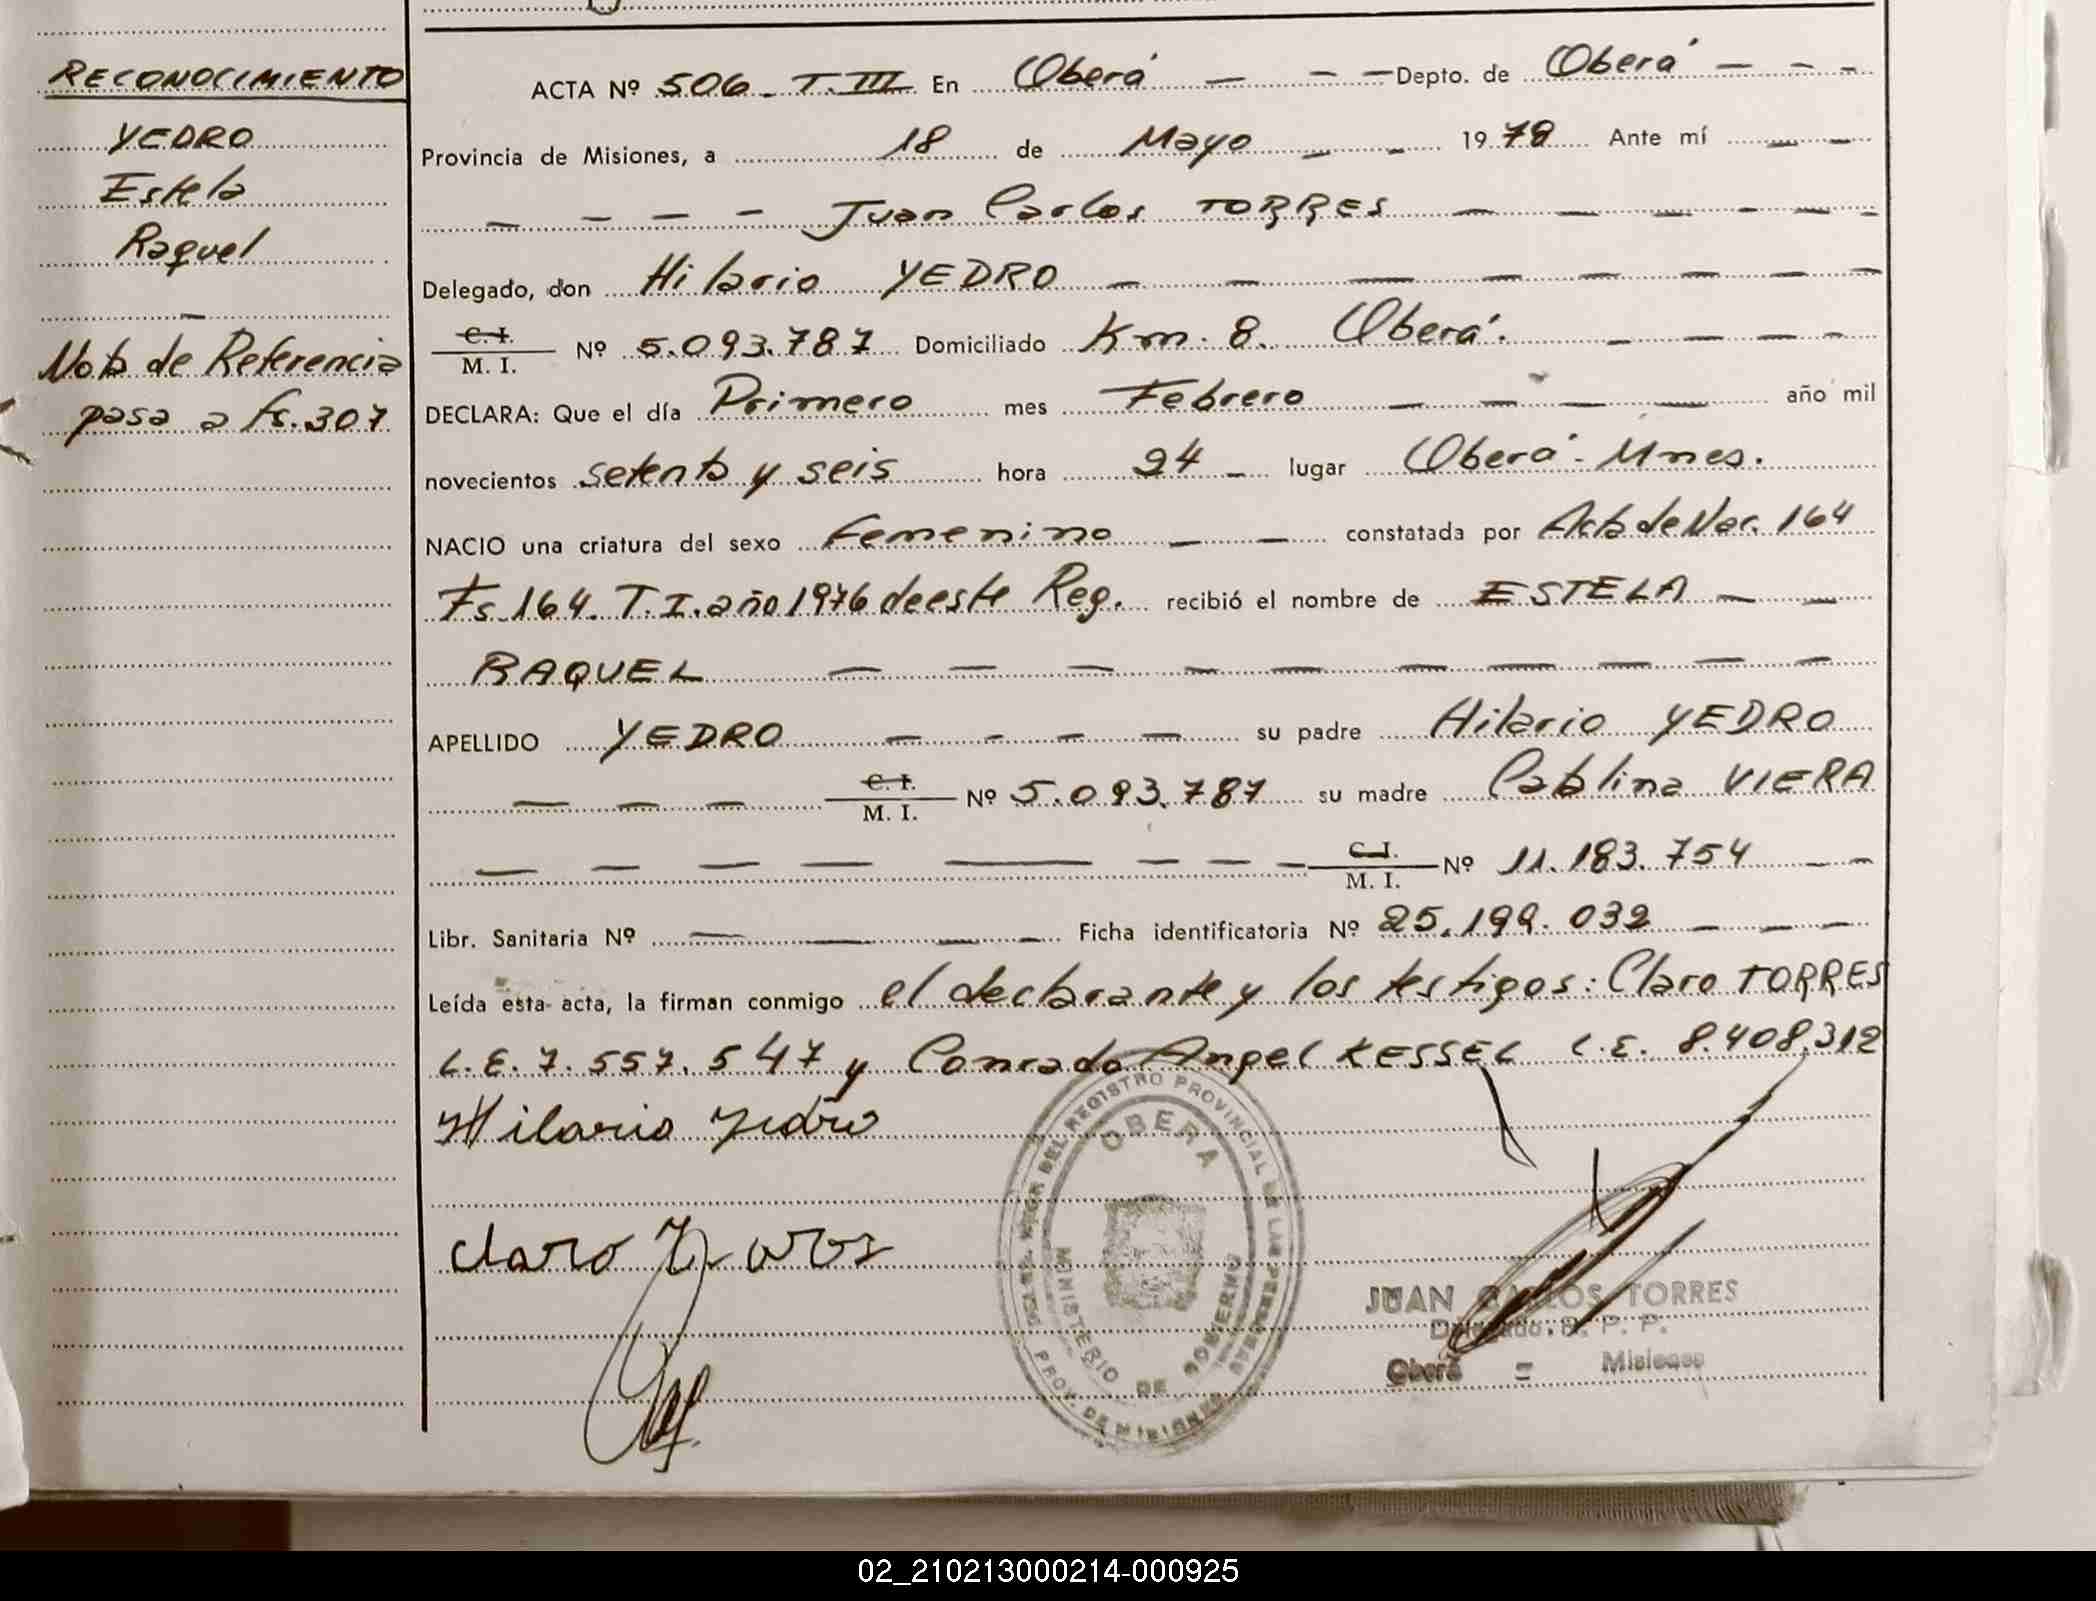 RECONOCIMIENTO
YEDRO
Estela
Raquel
Nota de Referencia
pasa a fs. 307
ACTA Nº 506. T. III En Oberá Depto. de Oberá
Provincia de Misiones, a 18 de Mayo 1978 Ante mí
Juan Carlos TORRES
Delegado, don Hilario YEDRO
C. I.
M. I. Nº 5.093.787 Domiciliado Km. 8. Oberá.
DECLARA: Que el día Primero mes Febrero año mil
novecientos setenta y seis hora 24 lugar Oberá - Mnes.
NACIO una criatura del sexo femenino constatada por Acta de Nac. 164
Fs. 164. T. I. año 1976 de este Reg. recibió el nombre de ESTELA
RAQUEL
APELLIDO YEDRO su padre Hilario YEDRO
C. I.
M. I. Nº 5.093.787 su madre Catalina VIERA
C. I.
M. I. Nº 11.183.754
Libr. Sanitaria Nº Ficha identificatoria Nº 25.199.032
Leída esta acta, la firman conmigo el declarante y los testigos: Claro TORRES
L.E. 7.557.547 y Conrado Angel KESSEL L.E. 8.408.312
Hilario Yedro
Claro Torres
DEL REGISTRO PROVINCIAL DE LAS PERSONAS
OBERA
MINISTERIO DE GOBIERNO
PROV. DE MISIONES
JUAN CARLOS TORRES
Delegado R. P. P.
Oberá - Misiones
02_210213000214-000925